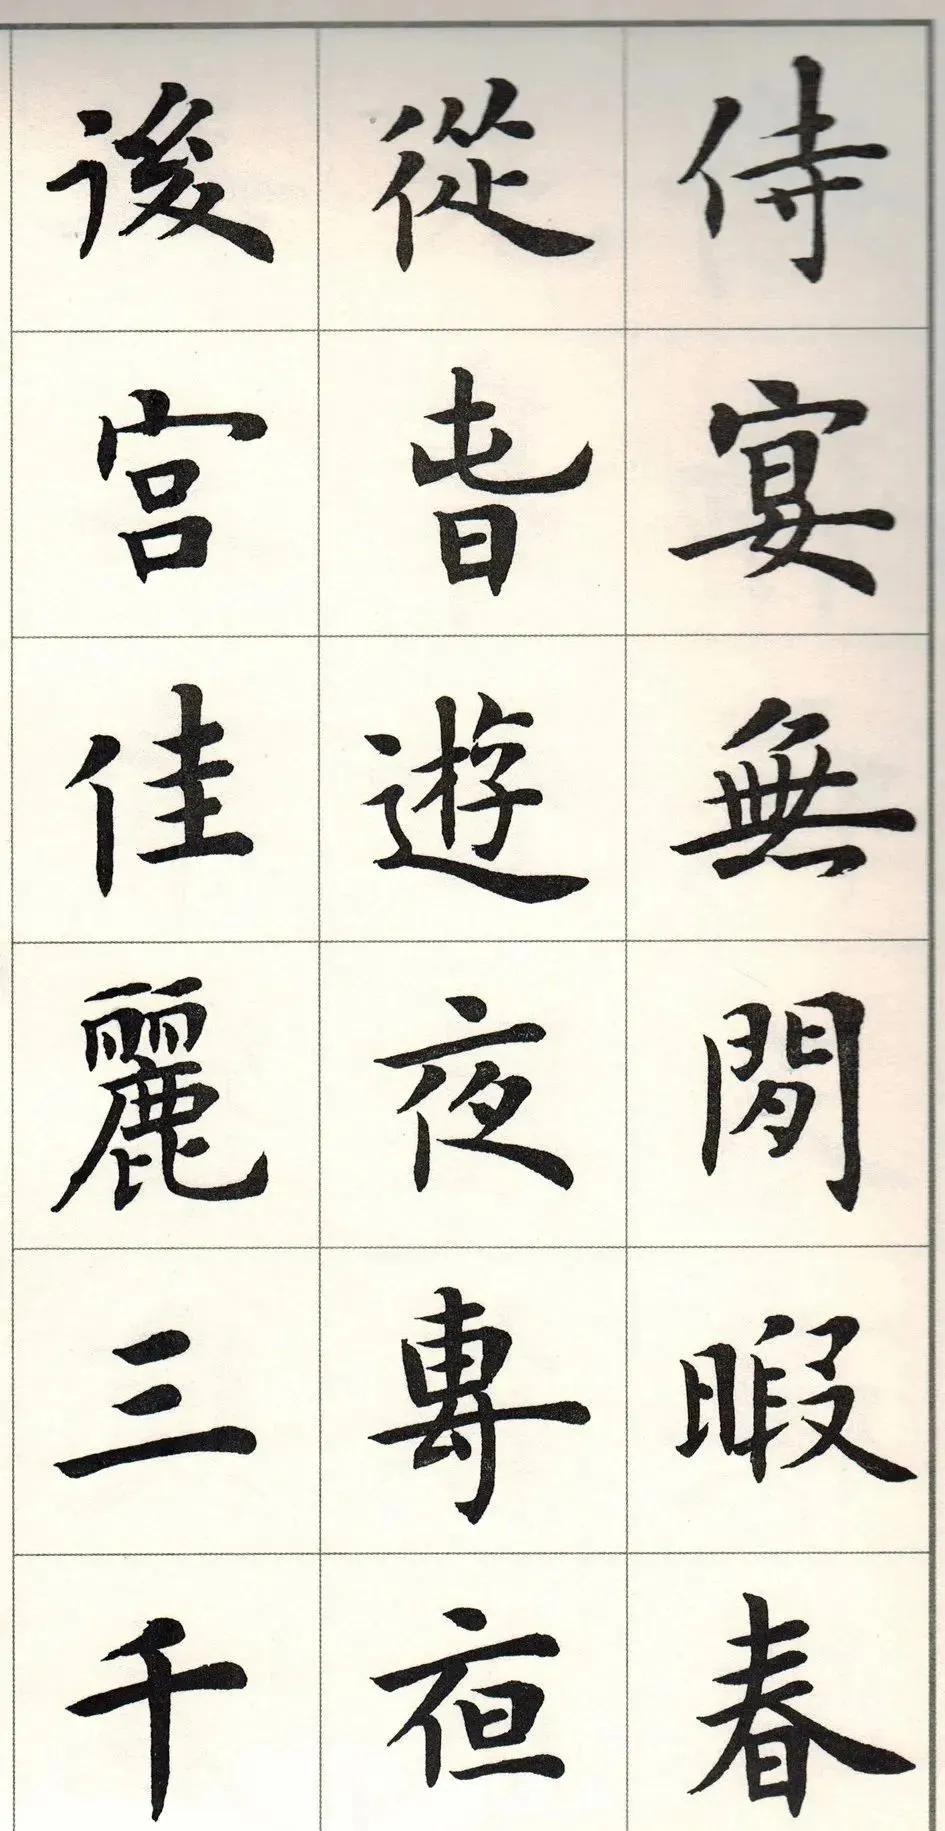 侍宴無閒暇春
從旾遊夜專亱
後宮佳麗三千